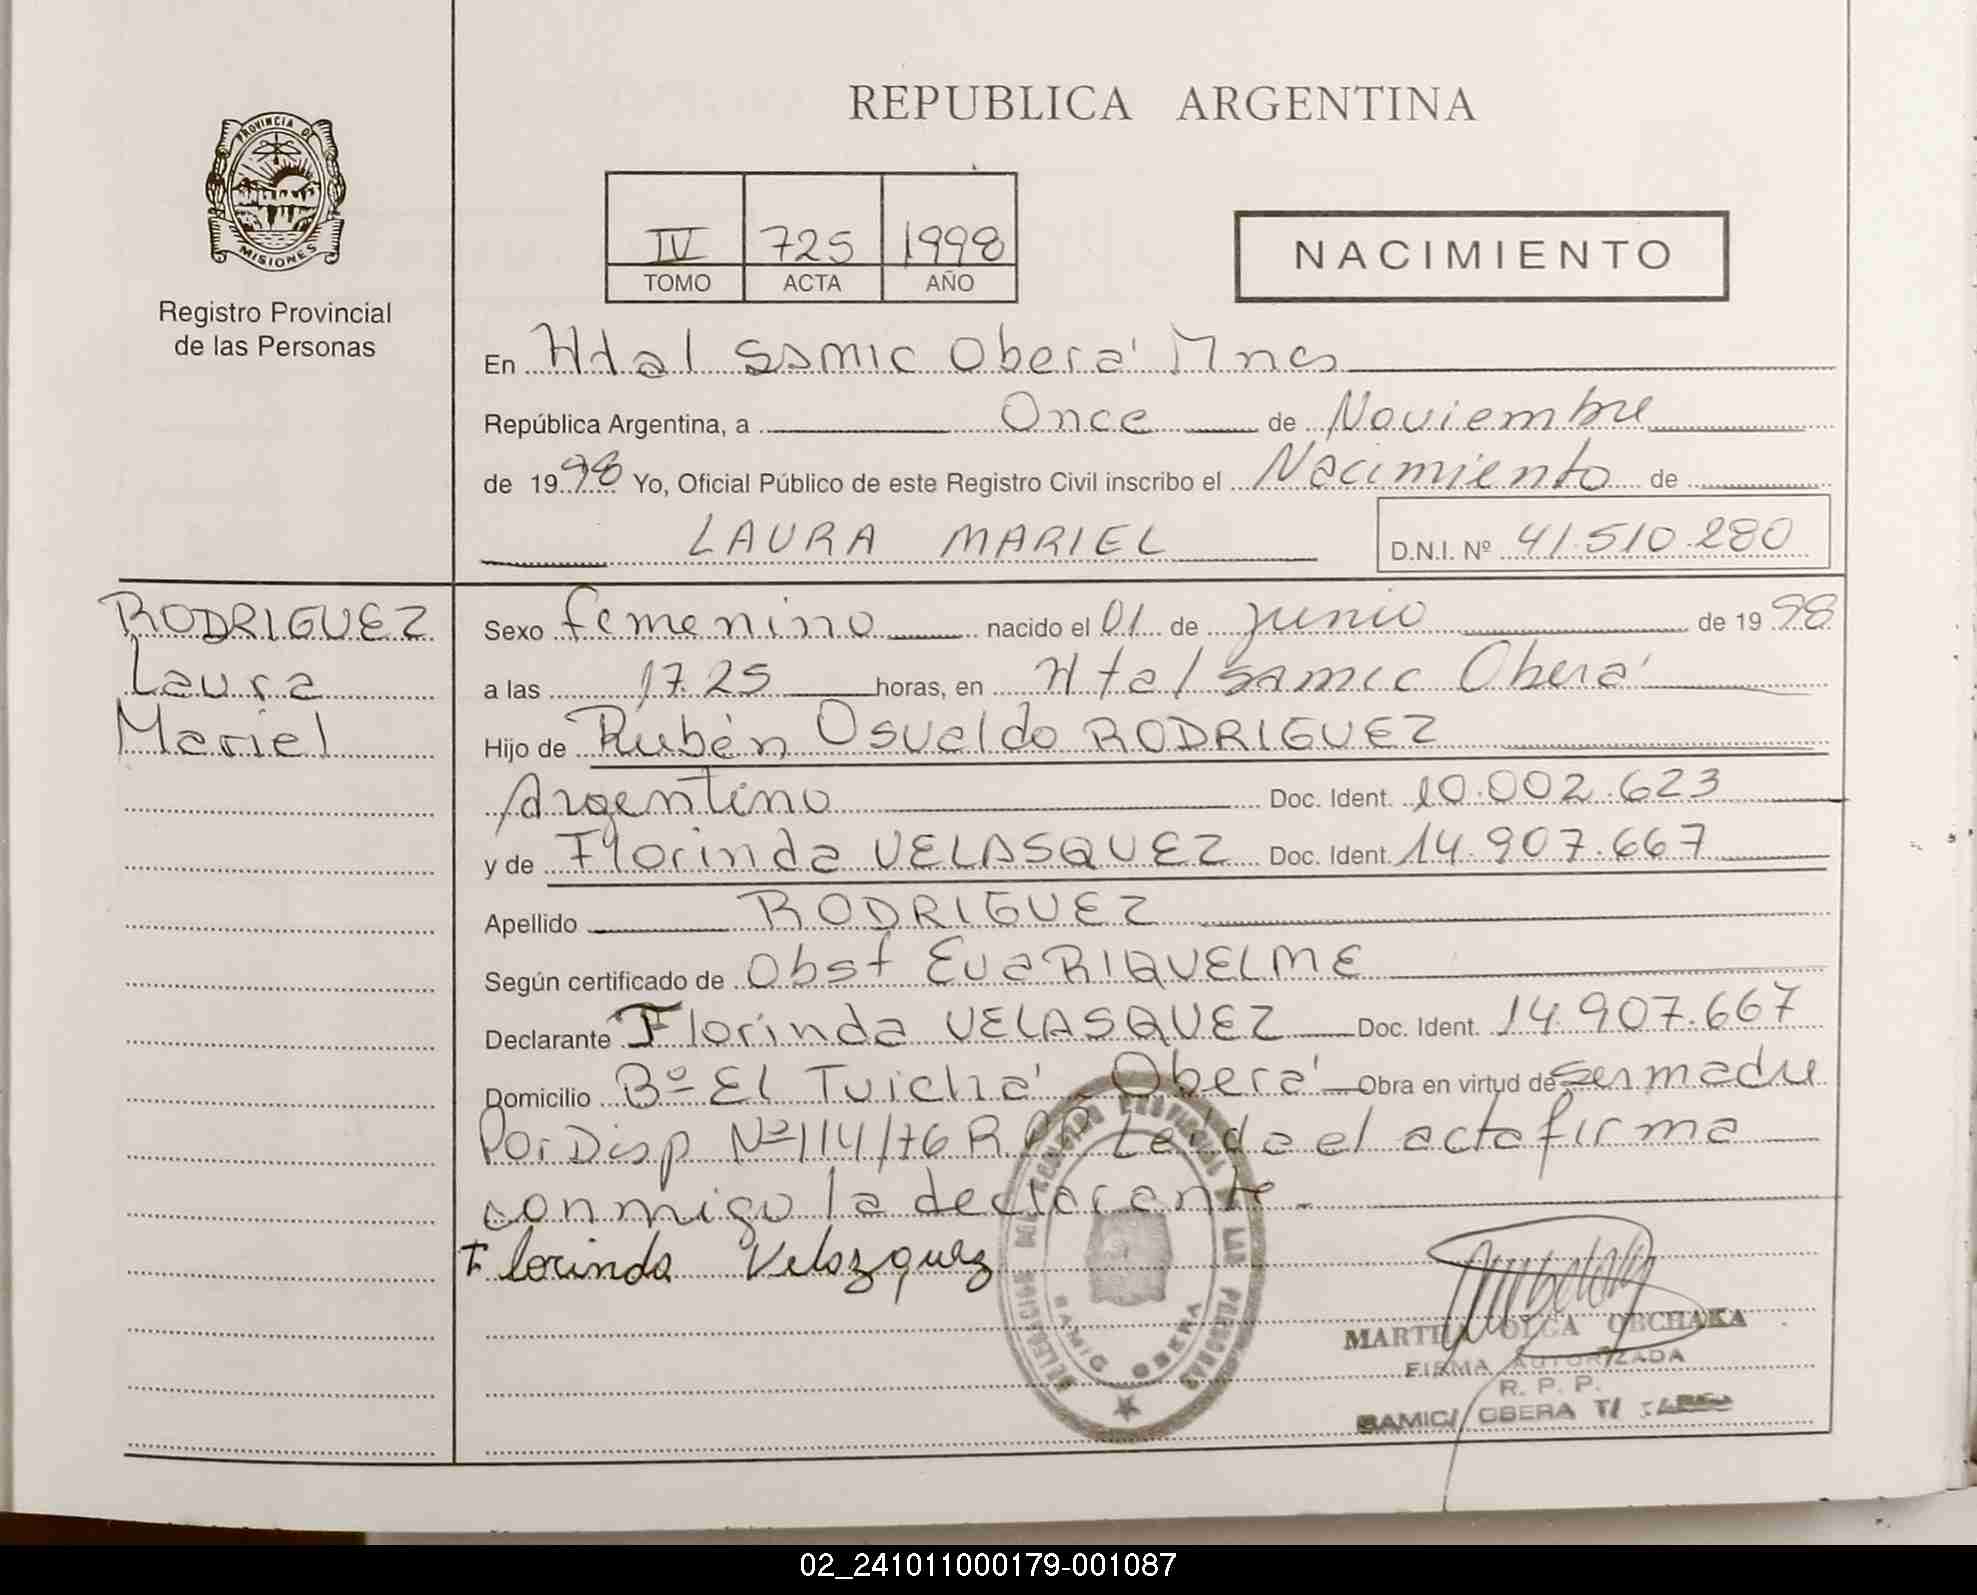 REPUBLICA ARGENTINA
PROVINCIA DE
MISIONES
Registro Provincial
de las Personas
IV 725 1998
TOMO ACTA AÑO
NACIMIENTO
En Htal Samic Oberá Mnes
República Argentina, a Once de Noviembre
de 1998 Yo, Oficial Público de este Registro Civil inscribo el Nacimiento de
LAURA MARIEL D.N.I. Nº 41.510.280
RODRIGUEZ
Laura
Mariel
Sexo femenino nacido el 01 de junio de 1998
a las 17.25 horas, en Htal samic Oberá
Hijo de Rubén Osvaldo RODRIGUEZ
Argentino Doc. Ident. 10.002.623
y de Florinda VELASQUEZ Doc. Ident. 14.907.667
Apellido RODRIGUEZ
Según certificado de Obst Eva RIQUELME
Declarante Florinda VELASQUEZ Doc. Ident. 14.907.667
Domicilio Bº El Tuichá Oberá Obra en virtud de ser madre
Por Disp Nº 114/76 R.P.P. Leida el acta firma
conmigo la declarante.-
Florinda Velazquez
DELEGACION DEL REGISTRO PROVINCIAL DE LAS PERSONAS
SAMIC OBERA
MARTHA OLGA OBCHAKA
FIRMA AUTORIZADA
R. P. P.
SAMIC/ OBERA
02_241011000179-001087